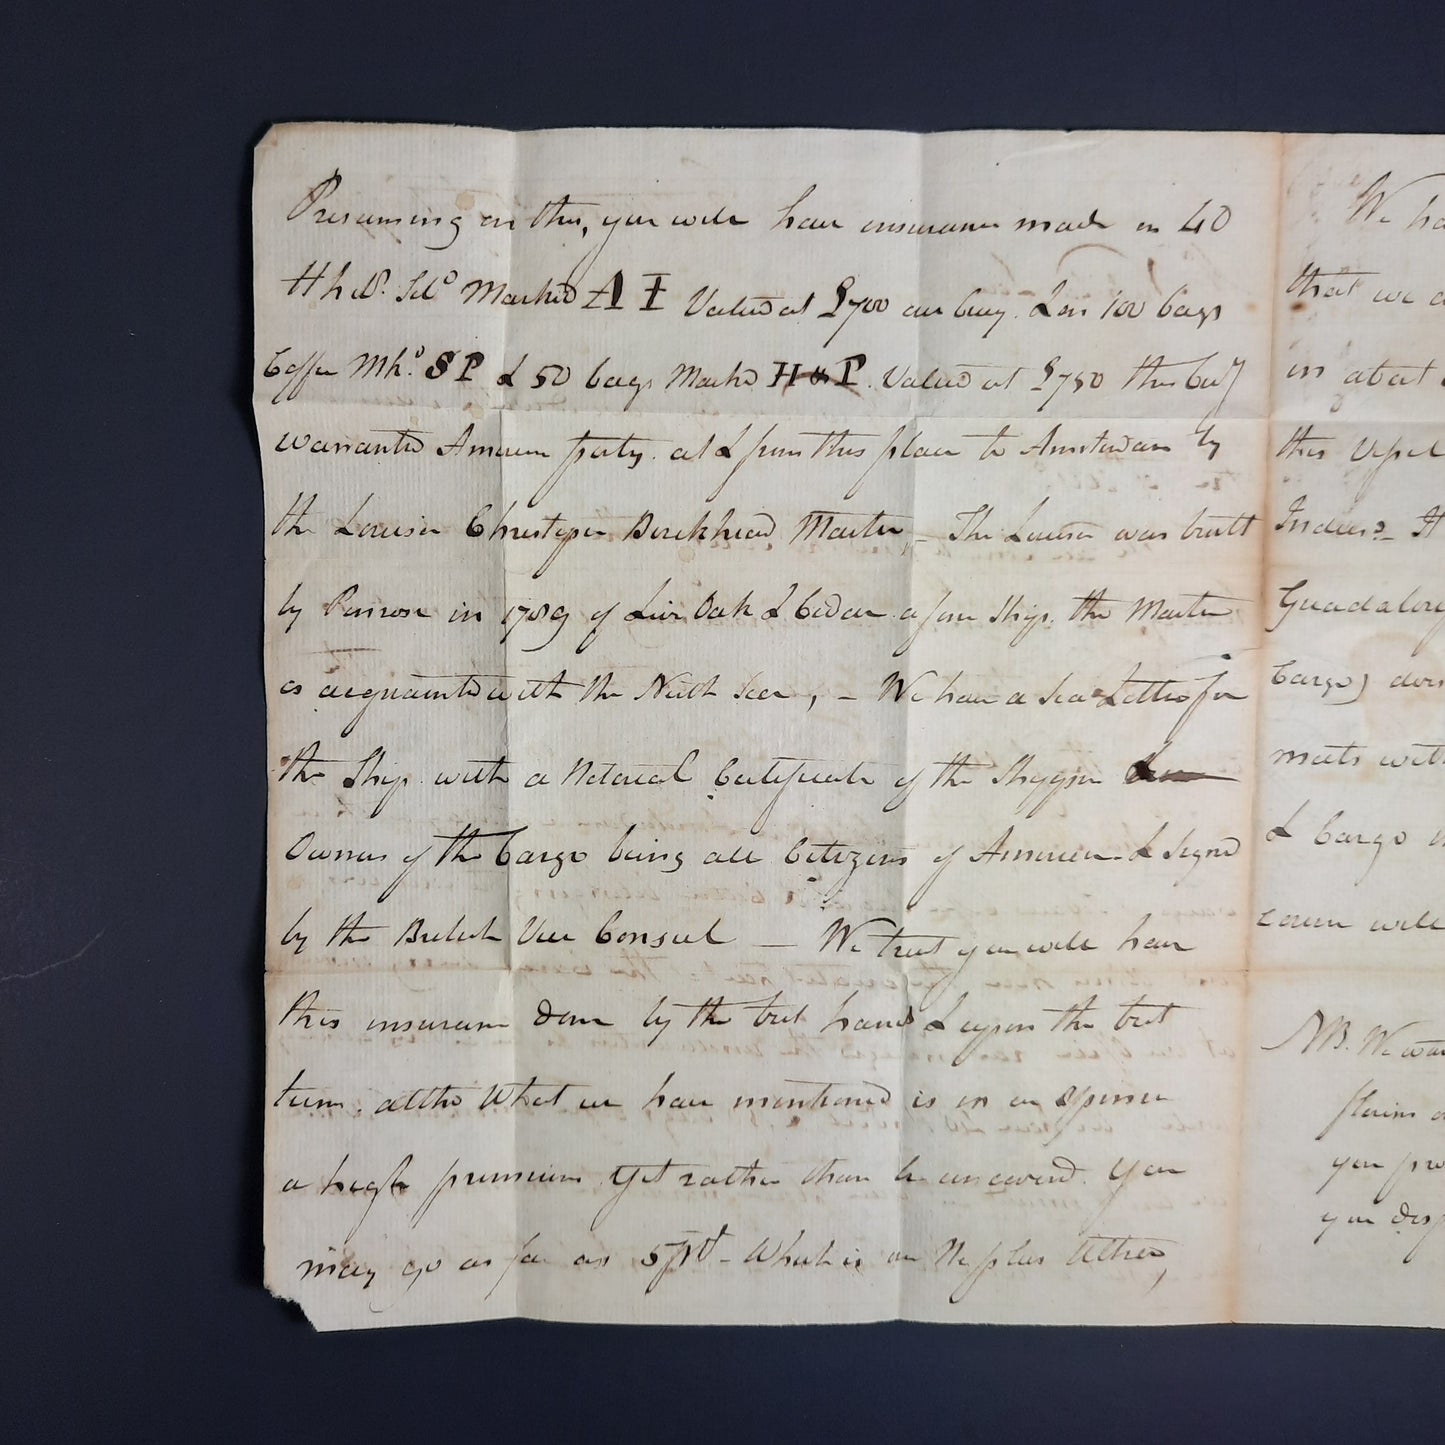 Presuming on this, you will have insurance made on 40
Hhds. Marked A I Valued at £700 our Curry. & on 100 bags
Coffee Mkd. S P & 50 bags Marked H & P. Valued at £750 this Curry
warranted American property. at & from this place to Amsterdam by
the Louisa Christopr Birckhead Master, – The Louisa was built
by Penrose in 1789 of Live Oak & Cedar a fine Ship. the Master
is acquainted with the North Sea, – We have a Sea Letter for
the Ship with a Notarial Certificate of the Shipper
Owners of the Cargo being all Citizens of America & Signd
by the British Vice Consul — We trust you will have
this insurance done by the best hands & upon the best
terms. altho What we have mentioned is in our Opinion
a high premium Yet rather than be uncoverd You
may go as far as 5 pCt – Which is our Ne plus Ultra,
We ha
that we
in abat
this Vessel
Indies – H
Guadalou
Cargo) does
meets with
& Cargo
will
NB. We wou
florins
you pro
you disp